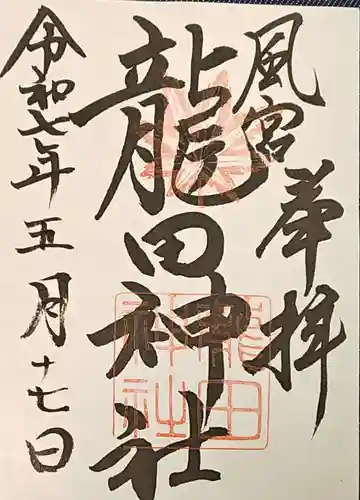 風宮 奉拝
龍田神社
令和七年五月十七日
龍田
神社